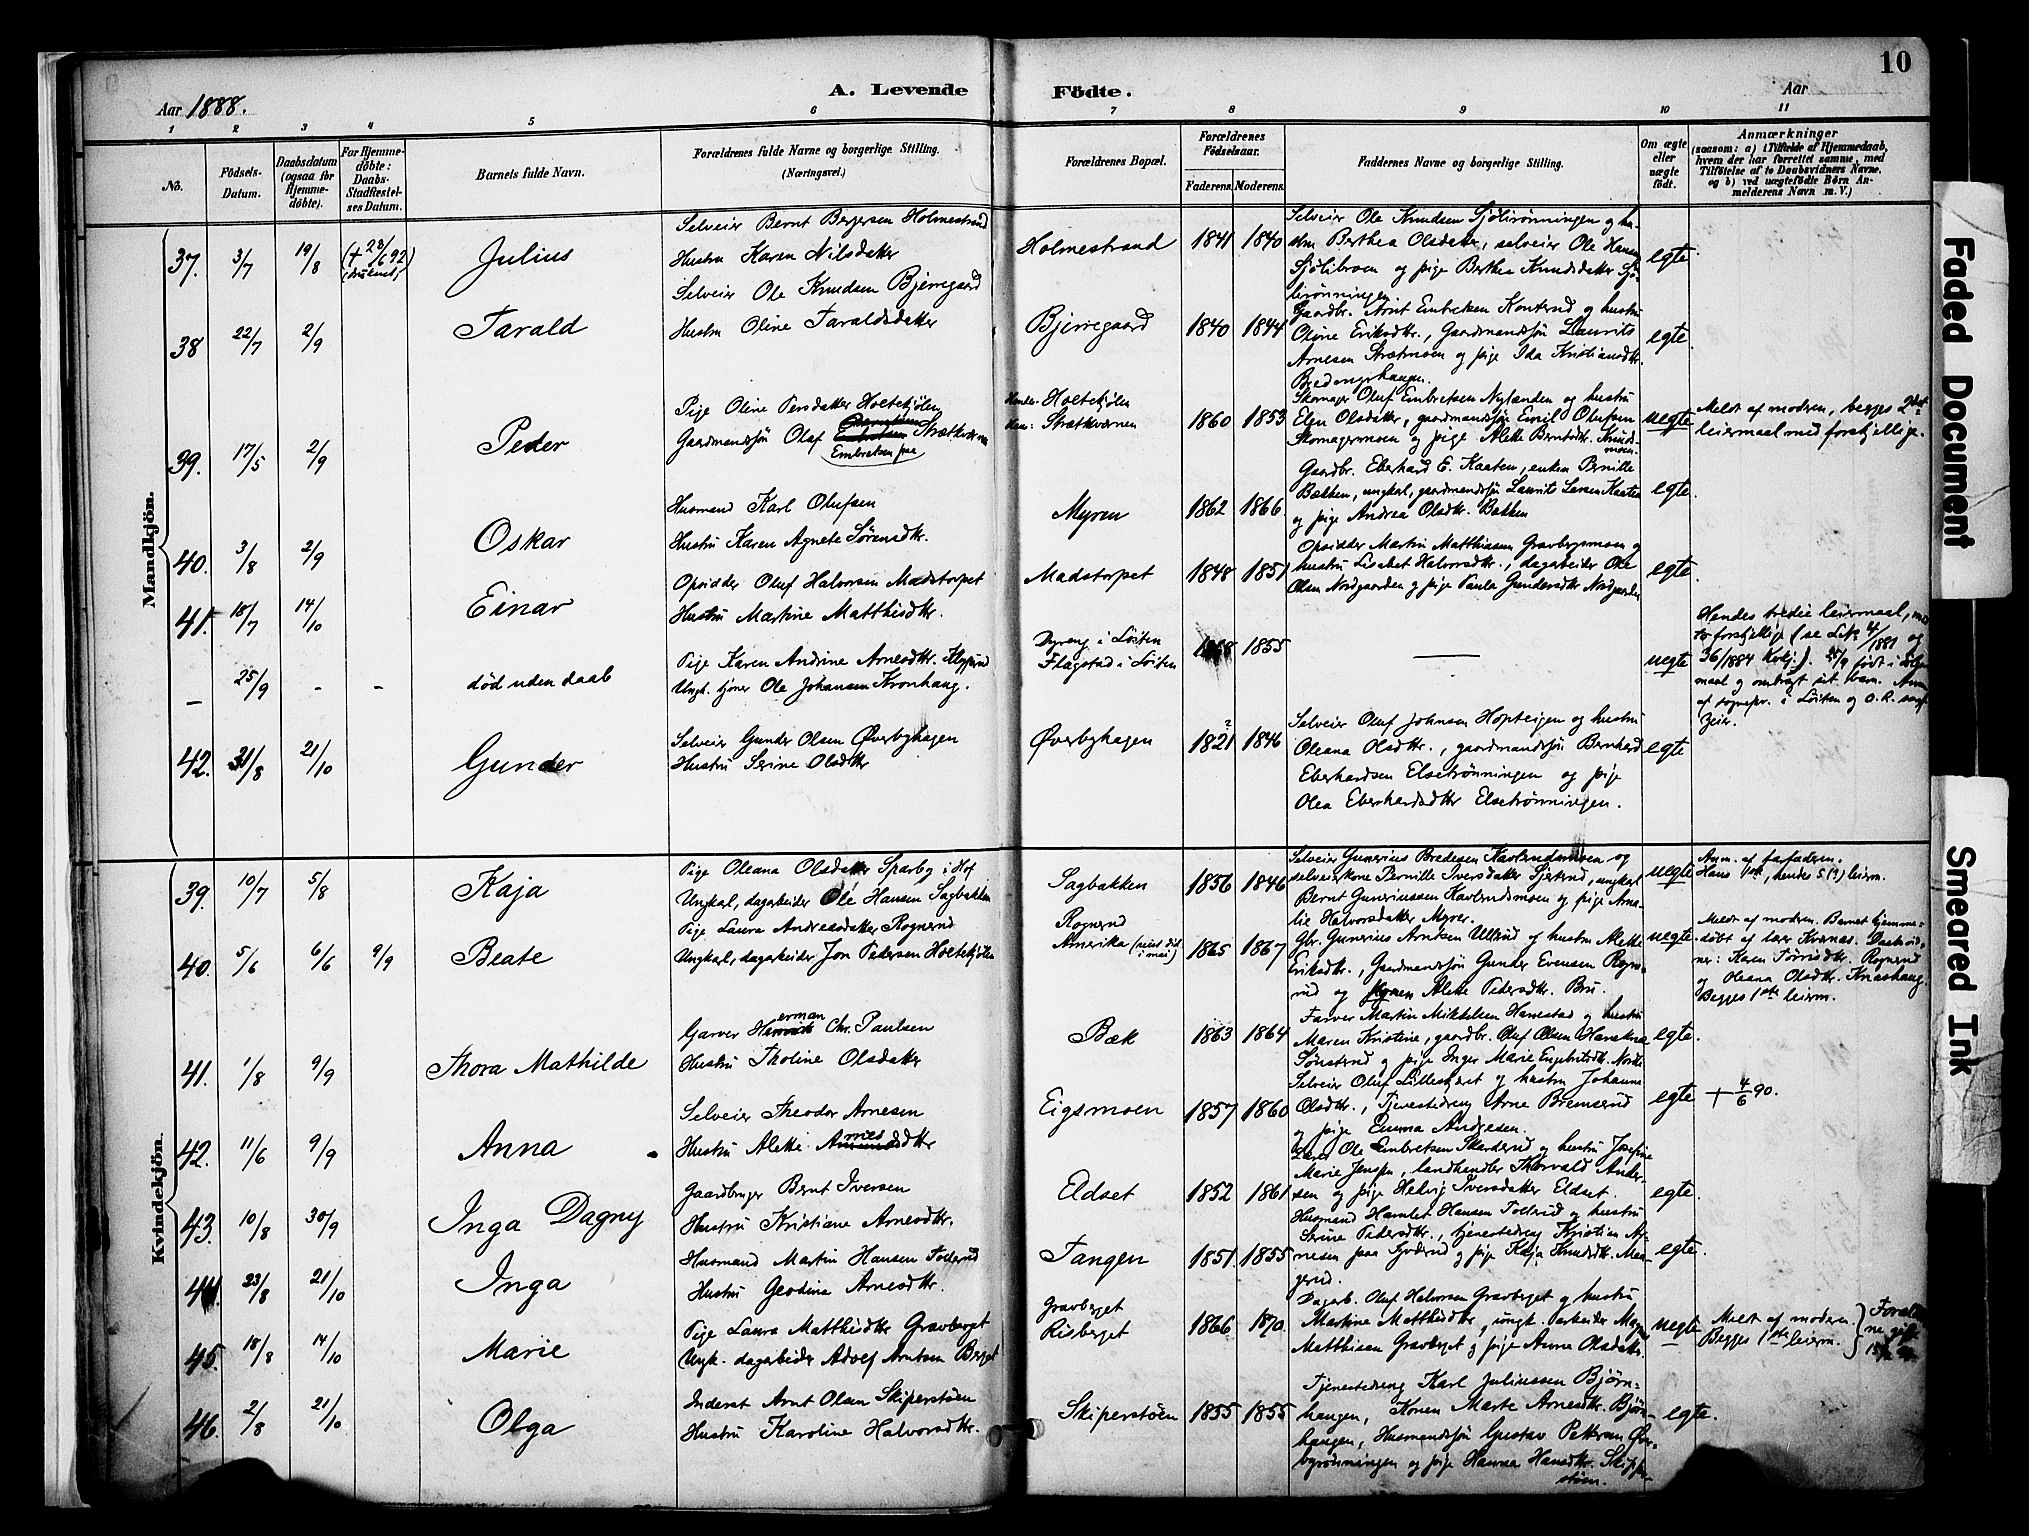 10
Aar 1888.
A. Levende Födte.
Aar
1 2 3 4 5 6 7 8 9 10 11
No.
Födsels-Datum.
Daabsdatum (ogsaa for Hjemme-döbte).
For Hjemme-döbte: Daabs-Stadfæstel-ses Datum.
Barnets fulde Navn.
Forældrenes fulde Navne og borgerlige Stilling.
(Næringsvei.)
Forældrenes Bopæl.
Forældrenes Födselsaar.
Faderens. Moderens.
Faddernes Navne og borgerlige Stilling.
Om ægte eller uægte födt.
Anmærkninger
(saasom: a) i Tilfælde af Hjemmedaab, hvem der har forrettet samme, med Tilföielse af to Daabsvidners Navne, og b) ved uægtefödte Börn Anmelderens Navn m. V.)
Mandkjön.
37. 3/7 19/8 (+ 23/6 92) Julius
Selveier Bernt Bergersen Holmestrand
Hustru Karen Nilsdatter
Holmestrand 1841 1840
Selveier Ole Knudsen Sjölirönningen og hu-
stru Berthea Olsdatter, selveier Ole Hansen
Sjölibroen og pige Berthea Knudsdatter Sjö-
lirönningen
egte.
38 22/7 2/9 Tarald
Selveier Ole Knudsen Bjerregaard
Hustru Oline Taraldsdatter
Bjerregaard 1840 1844
Gaardbr. Arnt Embretsen Konterud og hustru
Oline Eriksdtr., Gaardmandssön Laurits
Arnesen Strætmoen og pige Ida Kristiansdtr.
egte.
39. 17/5 2/9 Peder
Pige Oline Persdatter Holtekjölen
Gaardmandssön Olaf Embretsen paa Strætkværnen
Hendes: Holtekjölen
Hans: Strætkværnen
1860 1853
Skomager Oluf Embretsen Nylænden og hustru
Elen Olsdatter, gaardmandssön Emil Olufsen
Skomagermoen og pige Alette Berntsdtr. Knuds-
moen.
uegte
Meldt af moderen, begges 2det
leiermaal med forskjellige.
40. 3/8 2/9 Oskar
Husmand Karl Olufsen
Hustru Karen Agnete Sörensdtr.
Myren 1862 1866
Gaardbr. Eberhard E. Kaaten, enken Pernille
Bakken, ungkarl, gaardmandssön Laurits Larsen Kaaten
og pige Andrea Olsdtr. Bakken
egte.
41. 18/7 14/10 Einar
Opsidder Oluf Halvorsen Madstorpet
Hustru Martine Matthisdtr.
Madstorpet 1848 1851
Opsidder Martin Matthiasen Gravbergsmoen og
hustru Lisabet Halvorsdtr., dagarbeider Ole
Olsen Nordgaarden og pige Paula Gundersdtr Nordgaarden
egte.
– 25/9 - - död uden daab
Pige Karen Andrine Arnesdtr. Kloppud
Ungk. tjener Ole Johansen Kronhaug.
Dyreng i Löiten
Flagstad i Löiten
1855
—
uegte
Hendes tredie leiermaal, med
to forskjellige (se Litr 4/1881 og
36/1884 Kvkj.). 25/9 født i dølgs-
maal og ombragt sit barn. Anm.
af sognepr. i Löiten og O.R. sagf.
42. 31/8 21/10 Gunder
Selveier Gunder Olsen Øverbyhagen
Hustru Serine Olsdtr
Øverbyhagen 1821 ? 1846
Selveier Oluf Johnsen Hopteigen og hustru
Oleana Olsdtr., gaardmandssön Bernhard
Eberhardsen Elsetrönningen og pige
Olea Eberhardsdtr Elsetrönningen.
egte
Kvindekjön.
39. 10/7 5/8 Kaja
Pige Oleana Olsdatter Sparby i Hof
Ungkarl, dagarbeider Ole Hansen Sagbakken
Sagbakken 1856 1846
Selveier Gunerius Bredesen Kavlerudsmoen og
selveierkone Pernille Iversdatter Sjøterud, ungkarl
Bernt Gunerussen Kavlerudsmoen og pige Ama-
lie Halvorsdatter Myrer.
uegte
Anm. af farfaderen.
Hans 1ste, hendes 5(?) leierm.
40. 5/6 6/6 9/9 Beate
Pige Laura Andreasdatter Rognerud
Ungkarl, dagarbeider Jon Pedersen Holtekjölen
Rognerud
Amerika (reist did i mai)
1865 1867
Gbr. Gunerius Arntsen Ulterud og hustru Alette
Eriksdtr., Gaardmandssön Gunder Evensen Rogne-
rud og Alette Pedersdtr. Bru.
uegte
Meldt af moderen. Barnet hjemme-
döbt af lær Kværnæs. Daabsvid-
ner: Karen Torrisdtr. Rognerud
og Oleana Olsdtr. Knashaug
Begges 1ste leierm.
41. 1/8 9/9 Thora Mathilde
Garver Herman Chr. Paulsen
Hustru Tholine Olsdatter
Bæk 1863 1864
Farver Martin Mikkelsen Hanestad og hustru
Maren Kristine, gaardbr. Oluf Olsen Haneknæ
Sönsterud og pige Inger Marie Engebretsdtr. Nordre
egte.
42. 11/6 9/9 Anna
Selveier Theodor Arnesen
Hustru Alette Arnesdtr
Eigsmoen 1857 1860
Selveier Oluf Lillestöret og hustru Johanne
Olsdtr., Tjenestedreng Arne Bremserud
og pige Emma Andresen.
egte
+ 4/6 90.
43. 10/8 30/9 Inga Dagny
Gaardbruger Bernt Iversen
Hustru Kristiane Arnesdtr.
Eldset 1852 1861
Lærer Ole Embretsen Skarderud og hustru Josefine
Marie Jensen, landhandler Thorvald Ander-
sen og pige Helvig Iversdatter Eldset.
egte.
44. 23/8 21/10 Inga
Husmand Martin Hansen Tollerud
Hustru Geodine Arnesdtr.
Tangen 1851. 1855
Husmand Hamlet Hansen Tollerud og hustru
Serine Pedersdtr., tjenestedreng Kristian Ar-
nesen paa Gjderud og pige Kaja Knudsdtr. Ma-
gerud.
egte.
45. 18/8 14/10 Marie
Pige Laura Matthisdtr Gravberget
Ungk. dagarbeider Adolf Arntsen Berget
Gravberget
Risberget
1866 1870.
Dagarb. Oluf Halvorsen Gravberget og hustru
Martine Matthisdtr, ungk. arbeider Magnus
Matthisen Gravberget og pige Anna Olsdatter
uegte
Meldt af moderen
Begges 1ste leierm.
46. 2/8 21/10 Olga
Inderst Arnt Olsen Skiperstöen
Hustru Karoline Halvorsdtr.
Skiperstöen 1855 1855
Tjenestedreng Karl Juliussen Björn-
haugen, Konen Marte Arnesdtr. Björn-
haugen, Husmandssön Gustav Pettersen Øver-
byrönningen og pige Hanna Hansdtr. Skipper-
stöen.
egte.
Faded Document
Smeared Ink